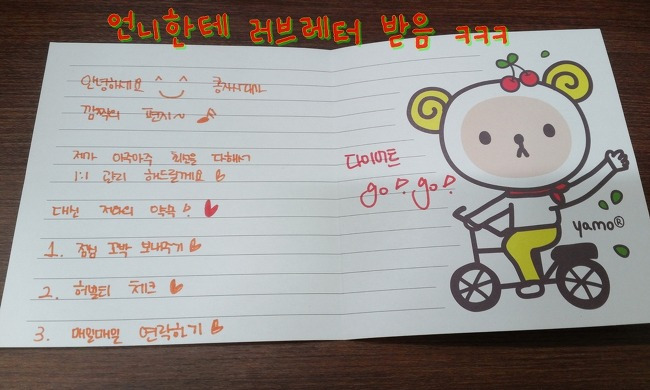 언니한테 러브레터 받음 ㅋㅋㅋ
안녕하세요 ^‿^
깜짝의 편지~♪
제가 아주아주 최선을 다해서
1:1 관리 해드릴게요
대신 저와의 약속!
1. 점심 도박 보내주기
2. 허벌티 체크
3. 매일매일 연락하기
다이어트
go! go!
yamo®